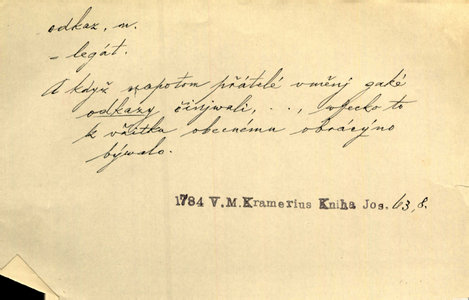 odkaz, m.
– legát.
A když zapotom přátelé vměnj gaké
odkazy činjwali, . . , wsecko to
k vžitku obecnému obrácýno
býwalo.
1784 V.M.Kramerius Kniha Jos. 63, 8.